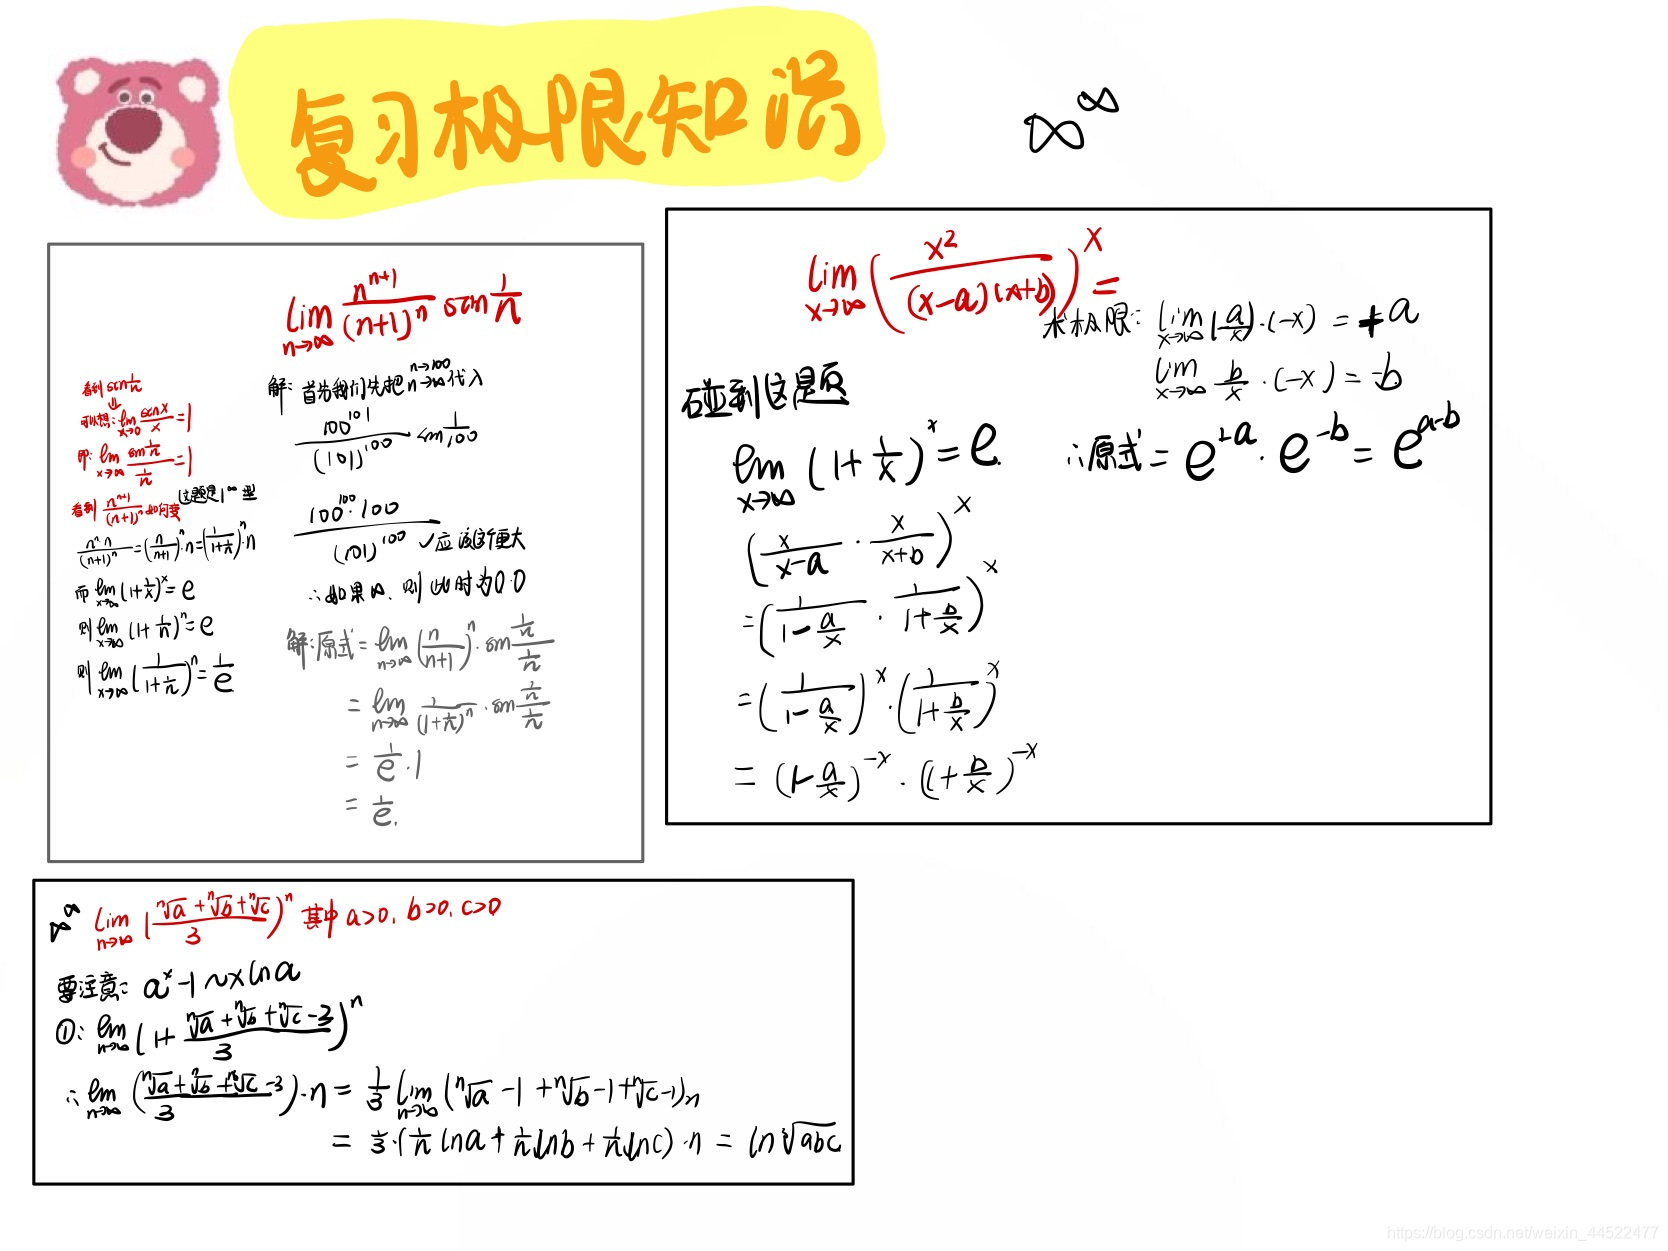 复习极限知识
∞^∞
lim_{n→∞} n^{n+1}/(n+1)^n sin 1/n
看到 sin 1/n
⇓
可以想: lim_{x→0} sinx/x = 1
即: lim_{x→∞} sin 1/n / 1/n = 1
看到 n^{n+1}/(n+1)^n 如何变 这题是1^∞型
n^n·n/(n+1)^n = (n/(n+1))^n·n = (1/(1+1/n))^n·n
而 lim_{x→∞} (1+1/x)^x = e
则 lim_{x→∞} (1+1/n)^n = e
则 lim_{x→∞} (1/(1+1/n))^n = 1/e
解: 首先我们先把 n→∞ 代入
n→100
100^{101}/(101)^{100} sin 1/100
100^{100}·100/(101)^{100} ✓应该这个更大
∴如果∞, 则此时为0·0
解:原式 = lim_{n→∞} (n/(n+1))^n · sin 1/n / 1/n
= lim_{n→∞} 1/(1+1/n)^n · sin 1/n / 1/n
= 1/e · 1
= 1/e.
lim_{x→∞} (x²/((x-a)(x+b)))^x =
碰到这题
lim_{x→∞} (1+1/x)^x = e.
(x/(x-a) · x/(x+b))^x
= (1/(1-a/x) · 1/(1+b/x))^x
= (1/(1-a/x))^x · (1/(1+b/x))^x
= (1-a/x)^{-x} · (1+b/x)^{-x}
求极限: lim_{x→∞} (-a/x)·(-x) = +a
lim_{x→∞} b/x·(-x) = -b
∴原式 = e^{+a} · e^{-b} = e^{a-b}
∞^∞ lim_{n→∞} ((ⁿ√a+ⁿ√b+ⁿ√c)/3)^n 其中 a>0, b>0, c>0
要注意: a^x-1~xlna
①: lim_{n→∞} (1+(ⁿ√a+ⁿ√b+ⁿ√c-3)/3)^n
∴ lim_{n→∞} ((ⁿ√a+ⁿ√b+ⁿ√c-3)/3)·n = 1/3 lim_{n→∞} (ⁿ√a-1+ⁿ√b-1+ⁿ√c-1)n
= 1/3·(1/n lna+1/n lnb+1/n lnc)·n = ln ³√abc
https://blog.csdn.net/weixin_44522477